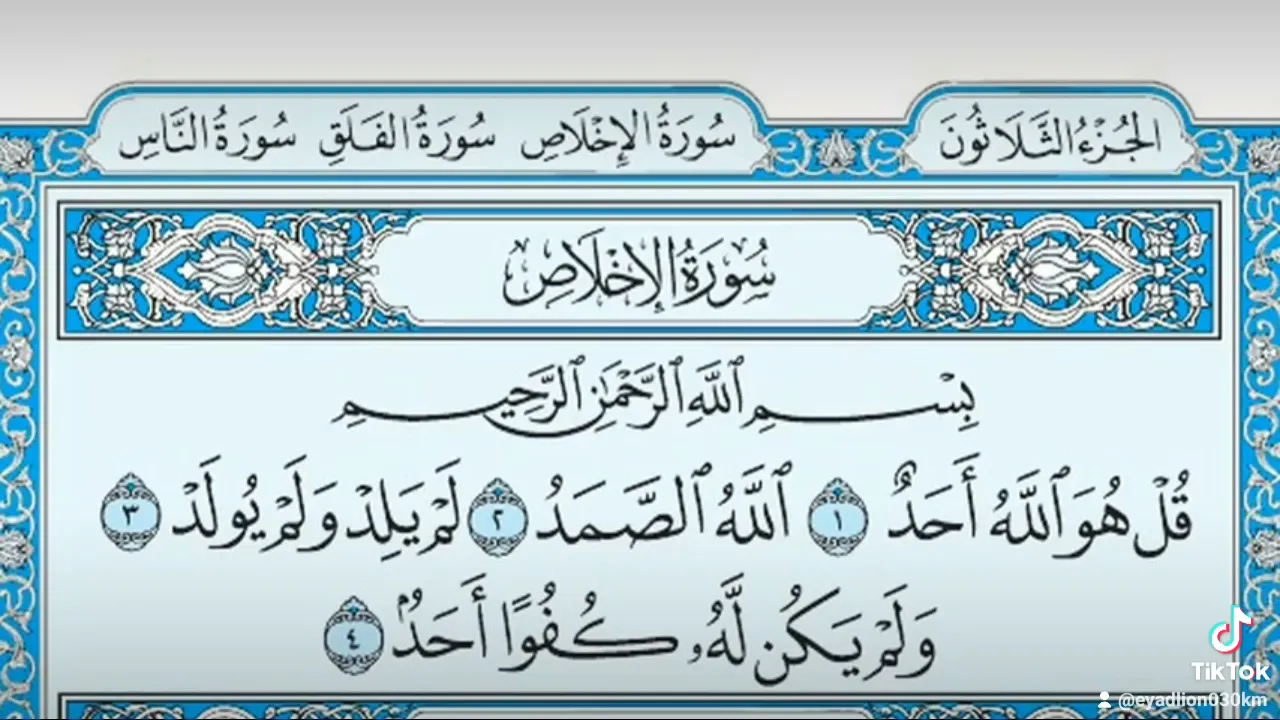 الجُزْءُ الثَّلَاثُونَ سُورَةُ الإِخْلَاصِ سُورَةُ الفَلَقِ سُورَةُ النَّاسِ
سُورَةُ الإِخْلَاصِ
بِسْمِ ٱللَّهِ ٱلرَّحْمَٰنِ ٱلرَّحِيمِ
قُلْ هُوَ ٱللَّهُ أَحَدٌ ١ ٱللَّهُ ٱلصَّمَدُ ٢ لَمْ يَلِدْ وَلَمْ يُولَدْ ٣
وَلَمْ يَكُن لَّهُۥ كُفُوًا أَحَدٌۢ ٤
TikTok
@eyadlion030km